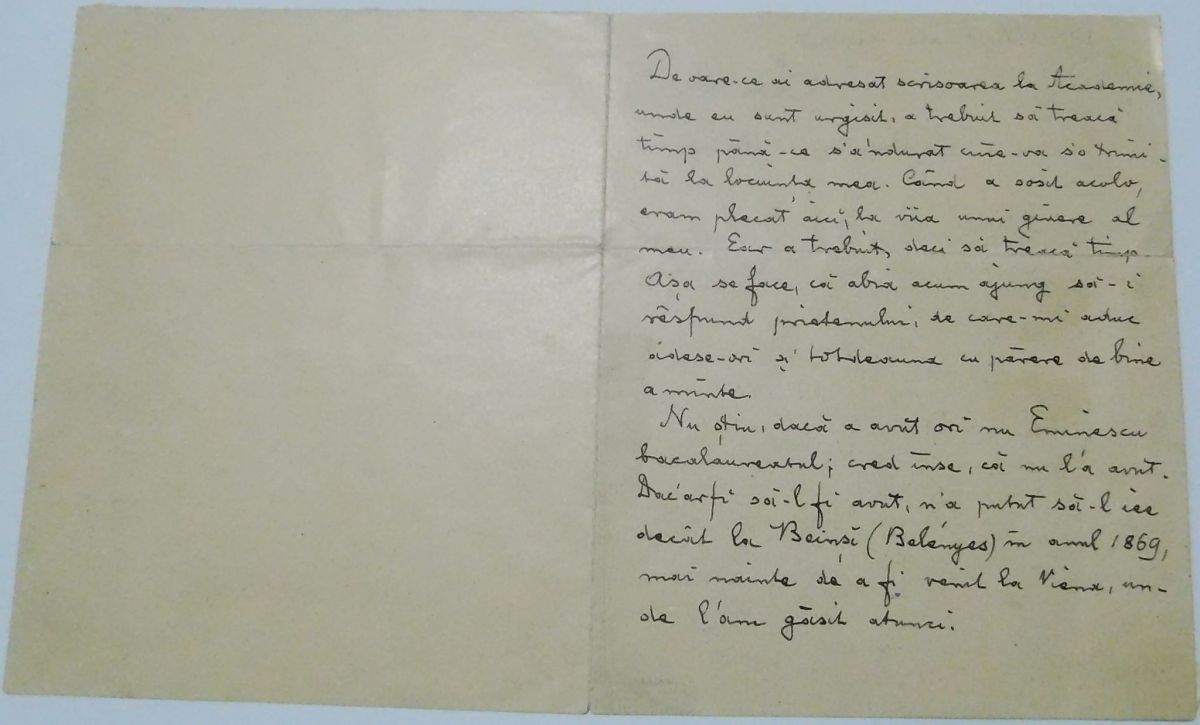 De oare-ce ai adresat scrisoarea la Academie,
unde eu sunt urgisit, a trebuit să treacă
timp până-ce s'a'ndurat cine-va s'o trimi-
tă la locuința mea. Când a sosit acolo,
eram plecat aici, la viia unui ginere al
meu. Ear a trebuit, deci să treacă timp
Așa se face, că abia acum ajung să-i
rĕspund prietenului, de care-mi aduc
adese-ori și totdeauna cu părere de bine
aminte.
Nu știu, dacă a avut ori nu Eminescu
bacalaureatul; cred înse, că nu l'a avut.
Dac'ar fi să-l fi avut, n'a putut să-l iee
decât la Beinși (Belényes) în anul 1869,
mai nainte de a fi venit la Viena, un-
de l'am găsit atunci.